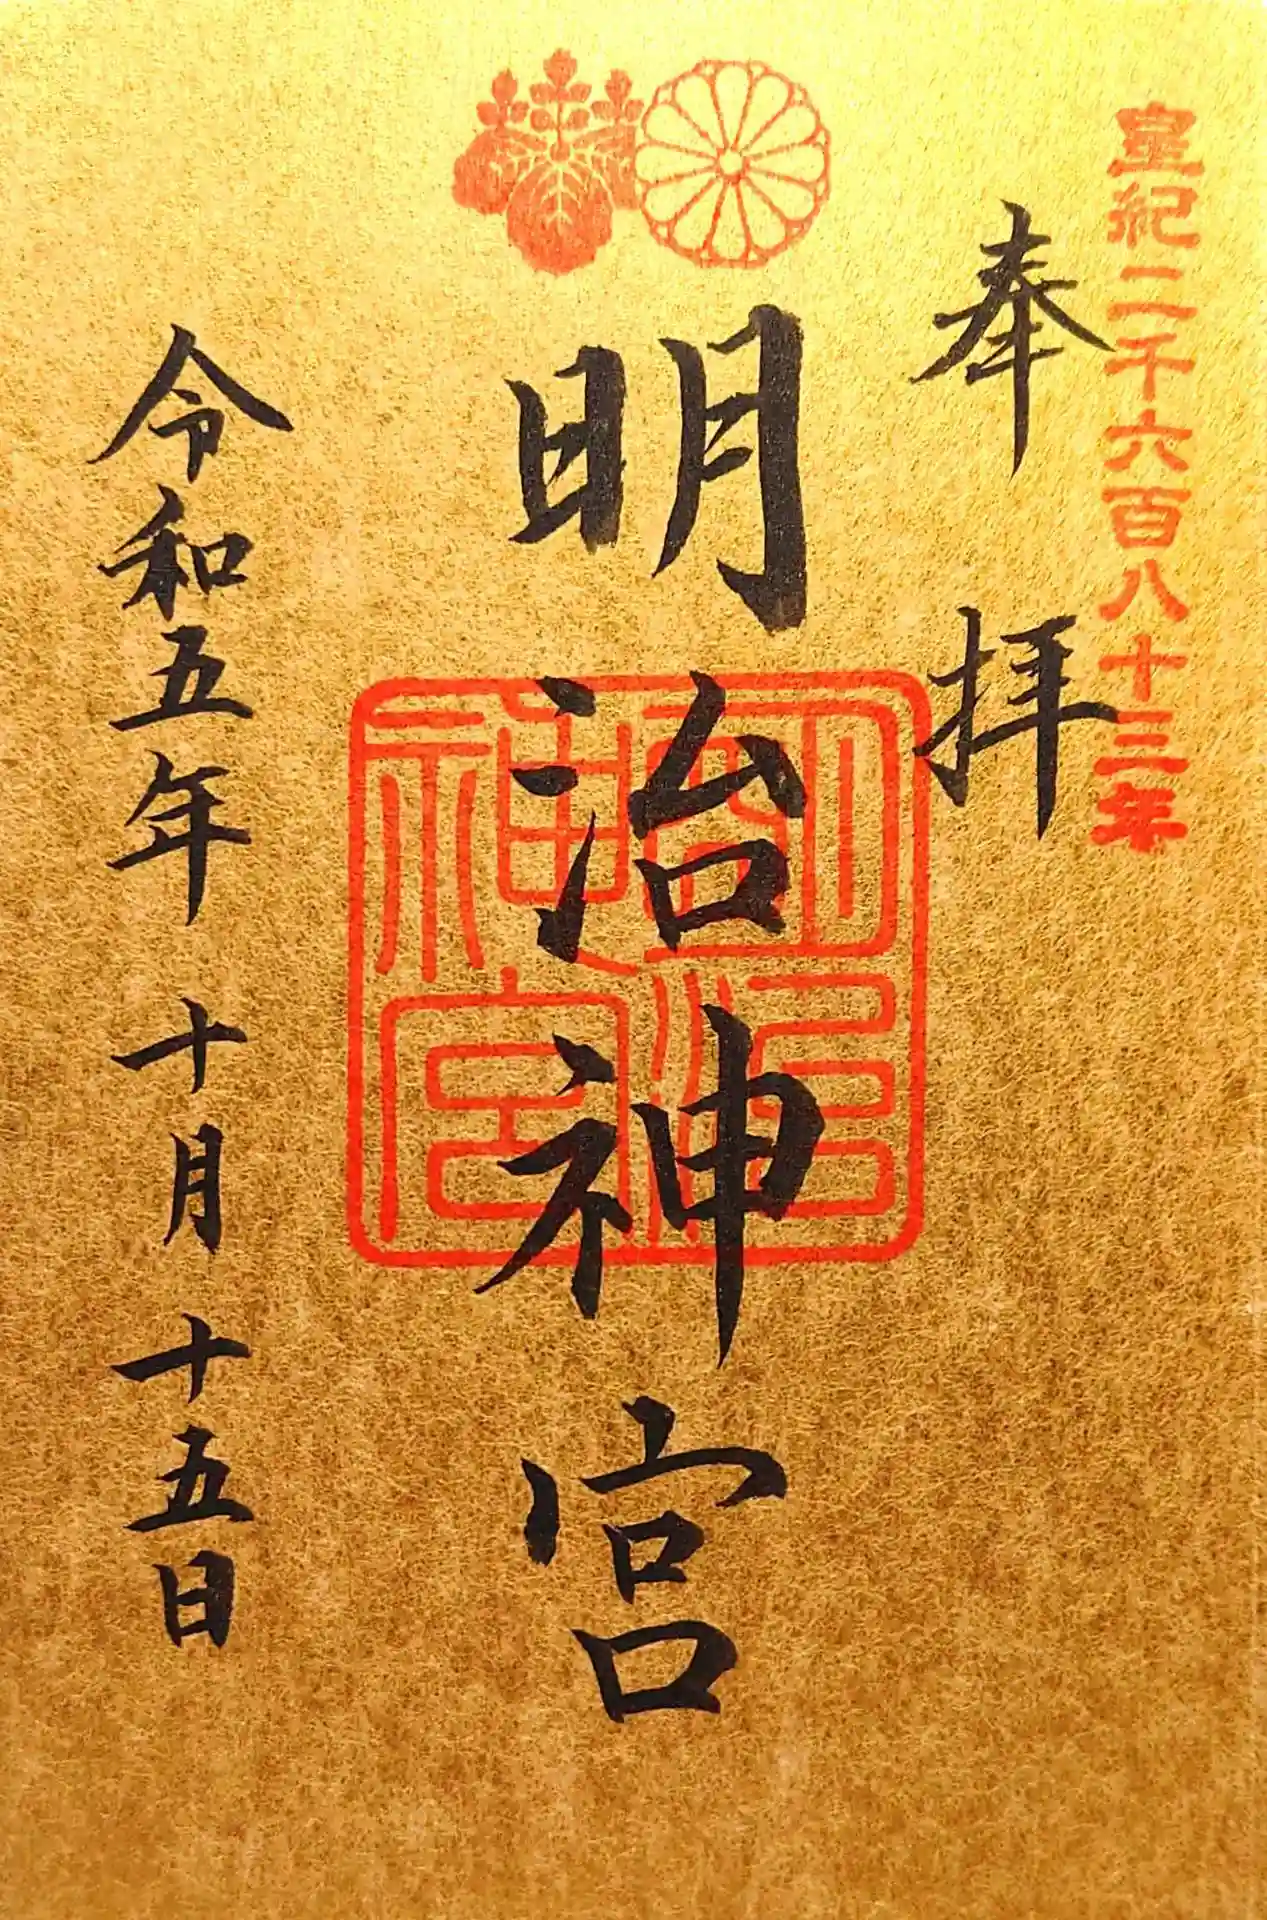 皇紀二千六百八十三年
奉拝
明治神宮
明治神宮
令和五年十月十五日